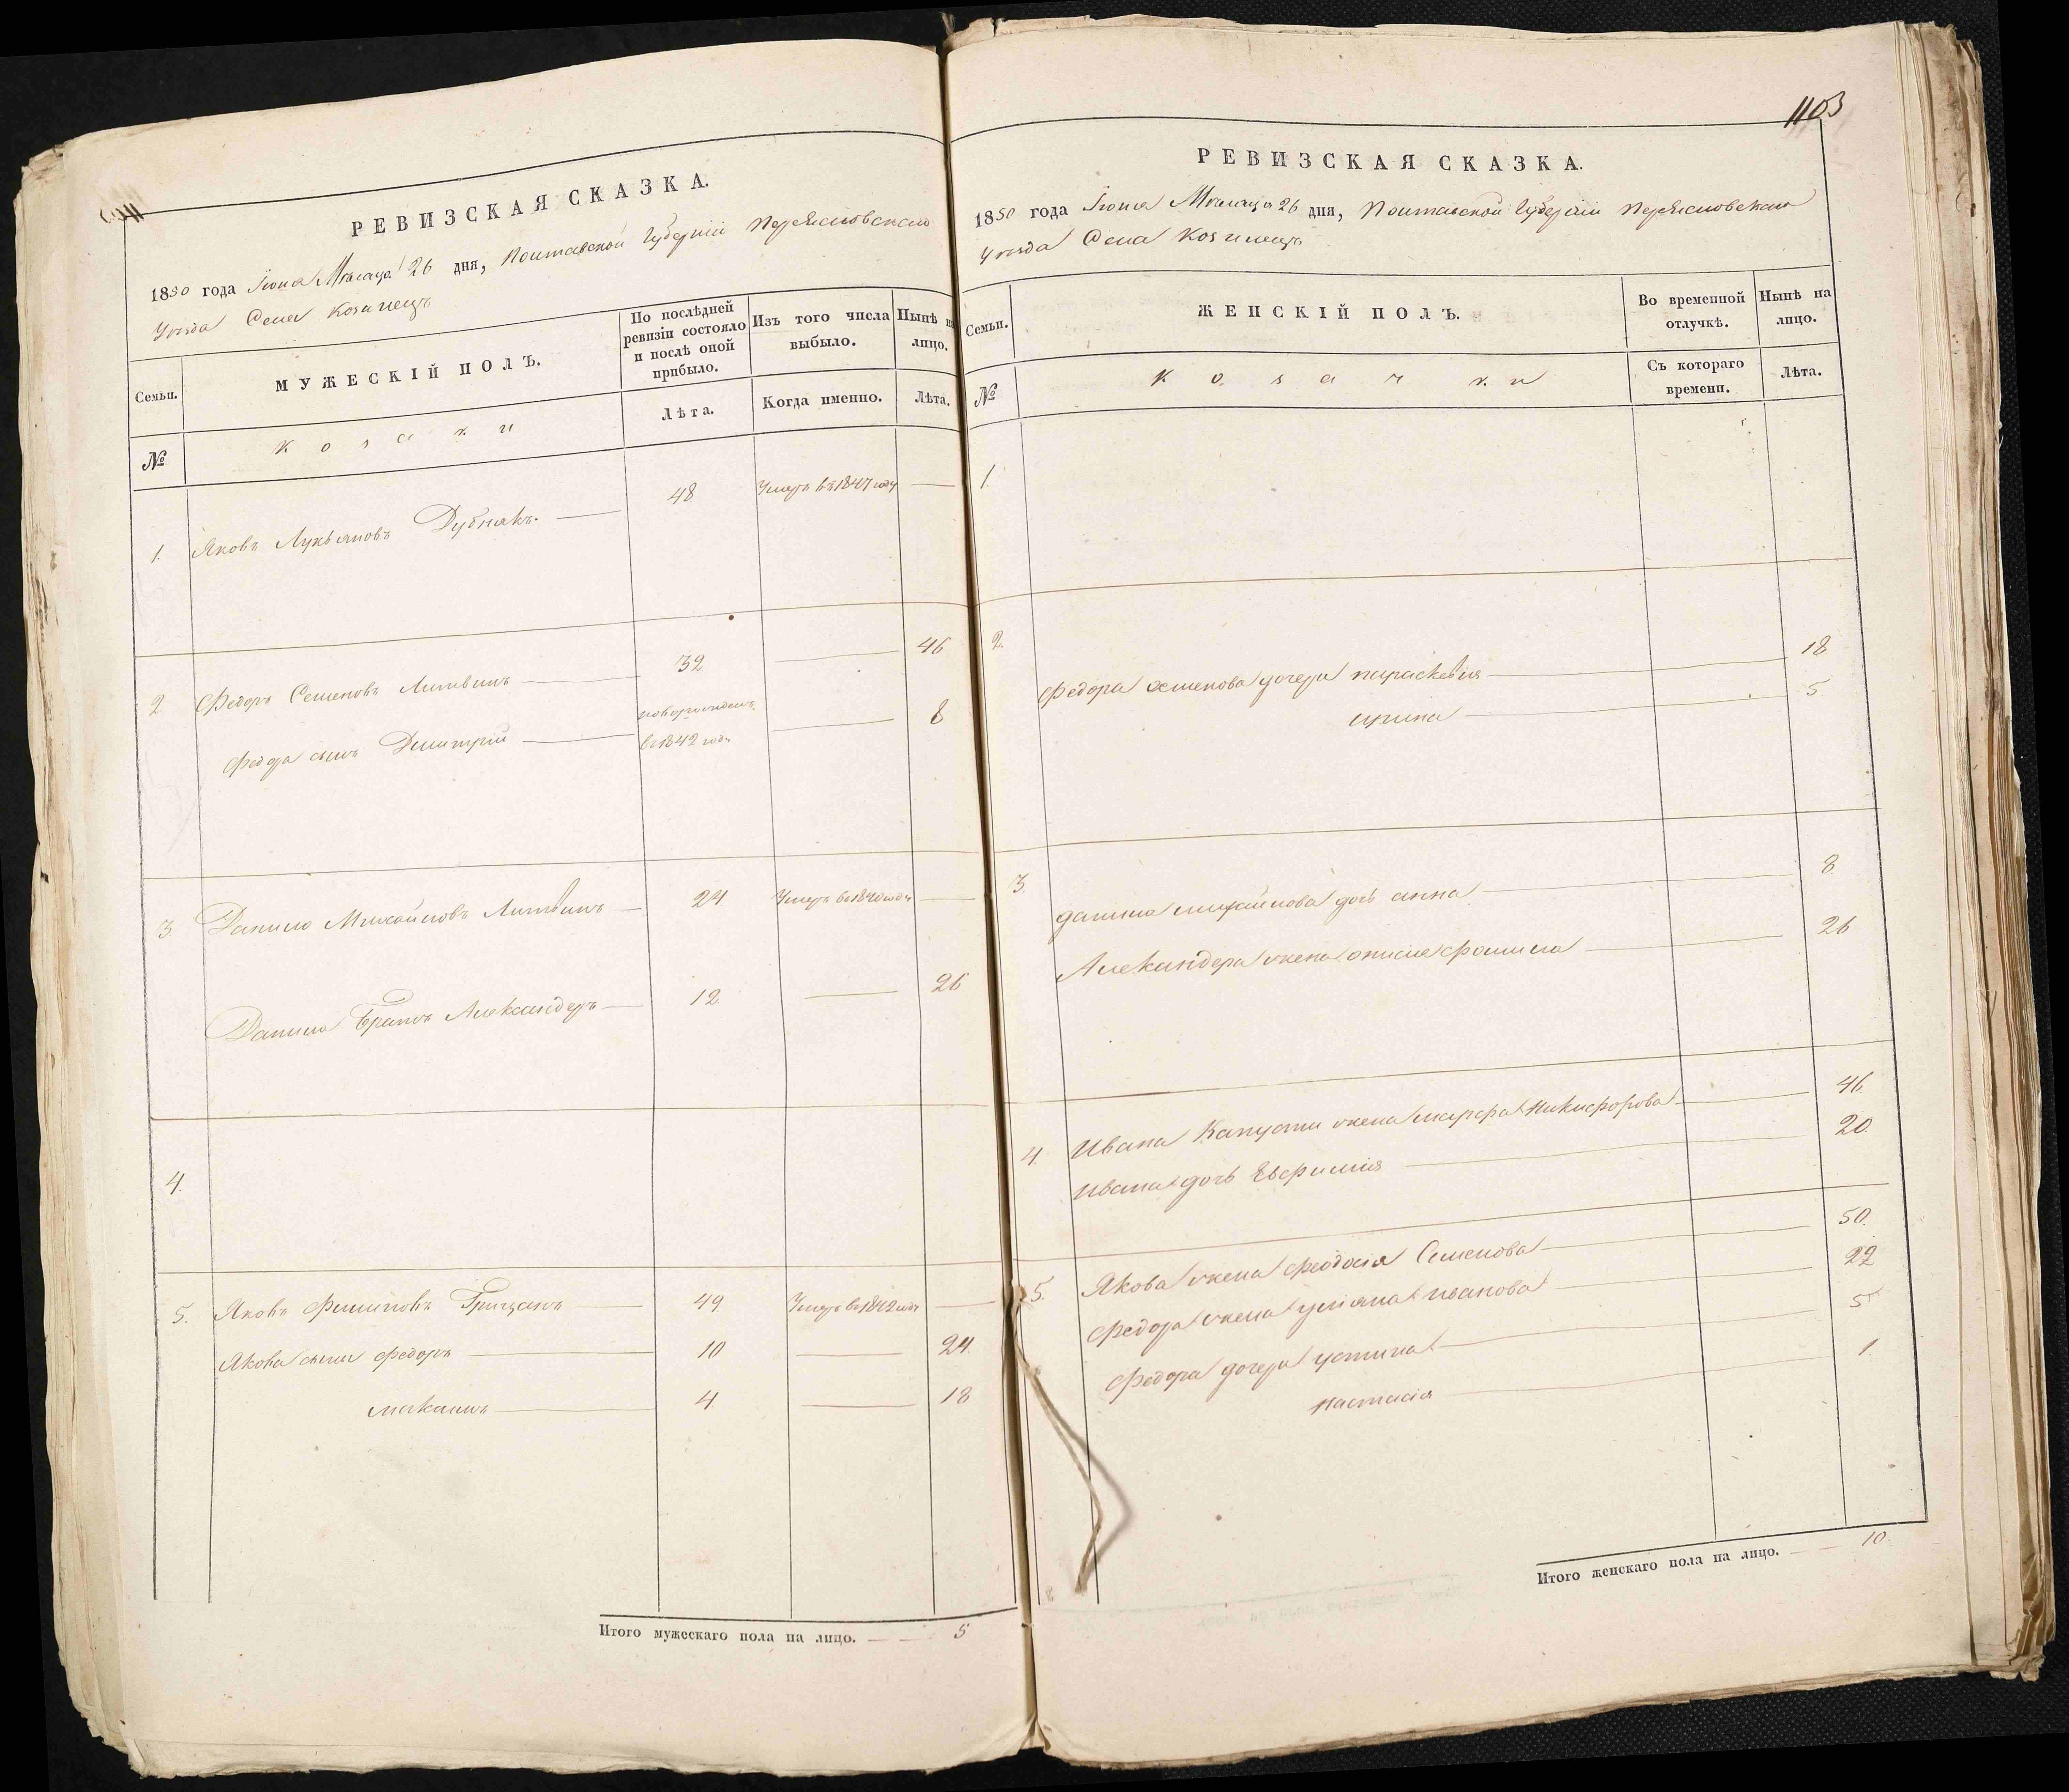 РЕВИЗСКАЯ СКАЗКА.
1850 года Іюня Мѣсяца 26 дня, Полтавской Губерніи Переясловскаго
Уѣзда Села Козинецъ
Семьи.
МУЖЕСКІЙ ПОЛЪ.
По послѣдней ревизіи состояло и послѣ оной прибыло.
Изъ того числа выбыло.
Нынѣ на лицо.
№
козаки
Лѣта.
Когда именно.
Лѣта.
1. Яковъ Лукьяновъ Дубнякъ. — 48 Умеръ въ 1847 году —
2 Федоръ Семеновъ Литвинъ — 32 — 46
Федора сынъ Дмитрій — новорожденъ въ 1842 году — 8
3 Данило Михайловъ Литвинъ — 24 Умеръ въ 1840 году —
Данила Братъ Александеръ — 12 — 26
4.
5. Яковъ Филиповъ Грицанъ — 49 Умеръ въ 1842 году —
Якова сыны Федоръ — 10 — 24.
Максимъ — 4 — 18
Итого мужескаго пола на лицо. — — 5
1103
РЕВИЗСКАЯ СКАЗКА.
1850 года Іюня Мѣсяца 26 дня, Полтавской Губерніи Переясловскаго
Уѣзда Села Козинецъ
Семьи.
ЖЕНСКІЙ ПОЛЪ.
Во временной отлучкѣ.
Нынѣ на лицо.
№
козачки
Съ котораго времени.
Лѣта.
1.
2. Федора Семенова дочери Параскевія — 18
Ирина — 5
3. Данила Михайлова дочь Анна — 8
Александера жена — 26
4. Ивана Капусти жена Марфа Никифорова — 46
Ивана дочь Евфимія — 20
5. Якова жена Феодосія Семенова — 50.
Федора жена Уліяна Иванова — 22
Федора дочери Устина — 5
Настасія — 1.
Итого женскаго пола на лицо. — — 10